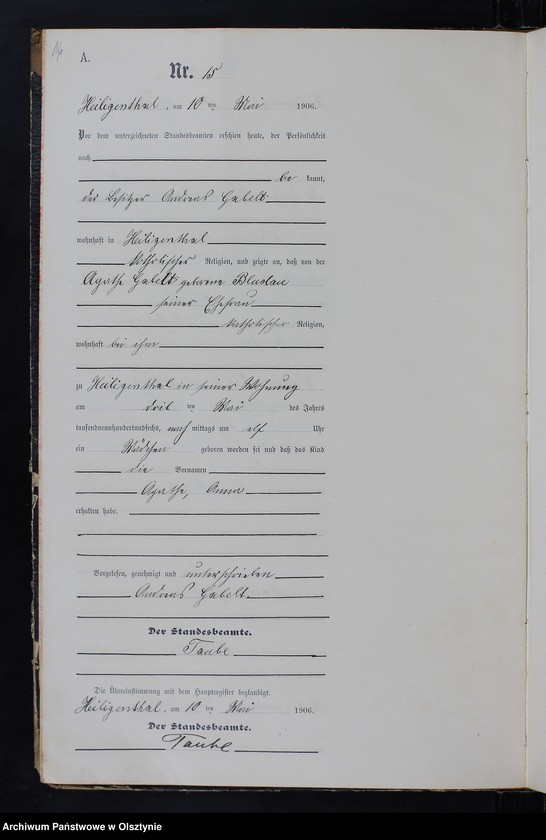 16
A.
Nr. 15
Heiligenthal, am 10 ten Mai 1906.
Vor dem unterzeichneten Standesbeamten erschien heute, der Persönlichkeit
nach
be kannt,
der Besitzer Andreas Gabelt
wohnhaft in Heiligenthal
katholischer Religion, und zeigte an, daß von der
Agathe Gabelt geborene Bludau
seiner Ehefrau
katholischer Religion,
wohnhaft bei ihm
zu Heiligenthal in seiner Wohnung
am drit ten Mai des Jahres
tausendneunhundertundsechs, nach mittags um elf Uhr
ein Mädchen geboren worden sei und daß das Kind
die Vornamen
Agathe, Anna
erhalten habe.
Vorgelesen, genehmigt und unterschrieben
Andreas Gabelt
Der Standesbeamte.
Taube
Die Übereinstimmung mit dem Hauptregister beglaubigt.
Heiligenthal, am 10 ten Mai 1906.
Der Standesbeamte.
Taube
Archiwum Państwowe w Olsztynie